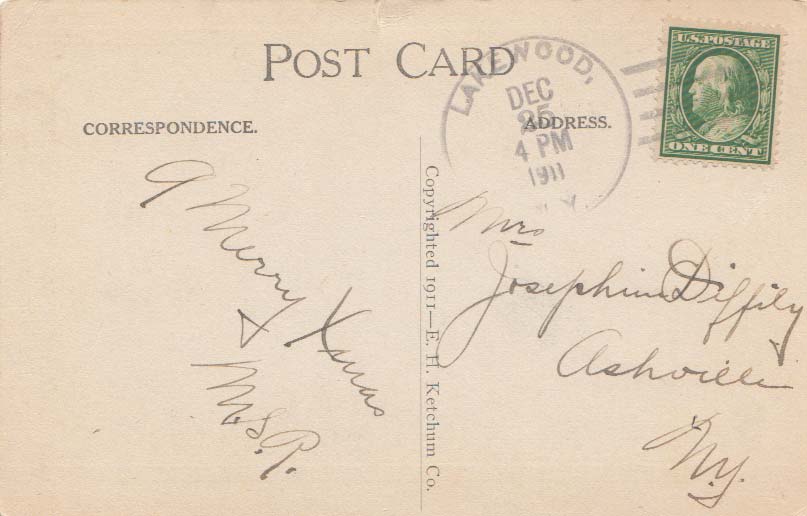 POST CARD
CORRESPONDENCE.
ADDRESS.
LAKEWOOD,
DEC
25
4 PM
1911
N.Y.
U.S. POSTAGE
ONE CENT
A Merry Xmas
M.S.P.
Copyrighted 1911—E. H. Ketchum Co.
Mrs
Josephine Diffily
Ashville
N.Y.